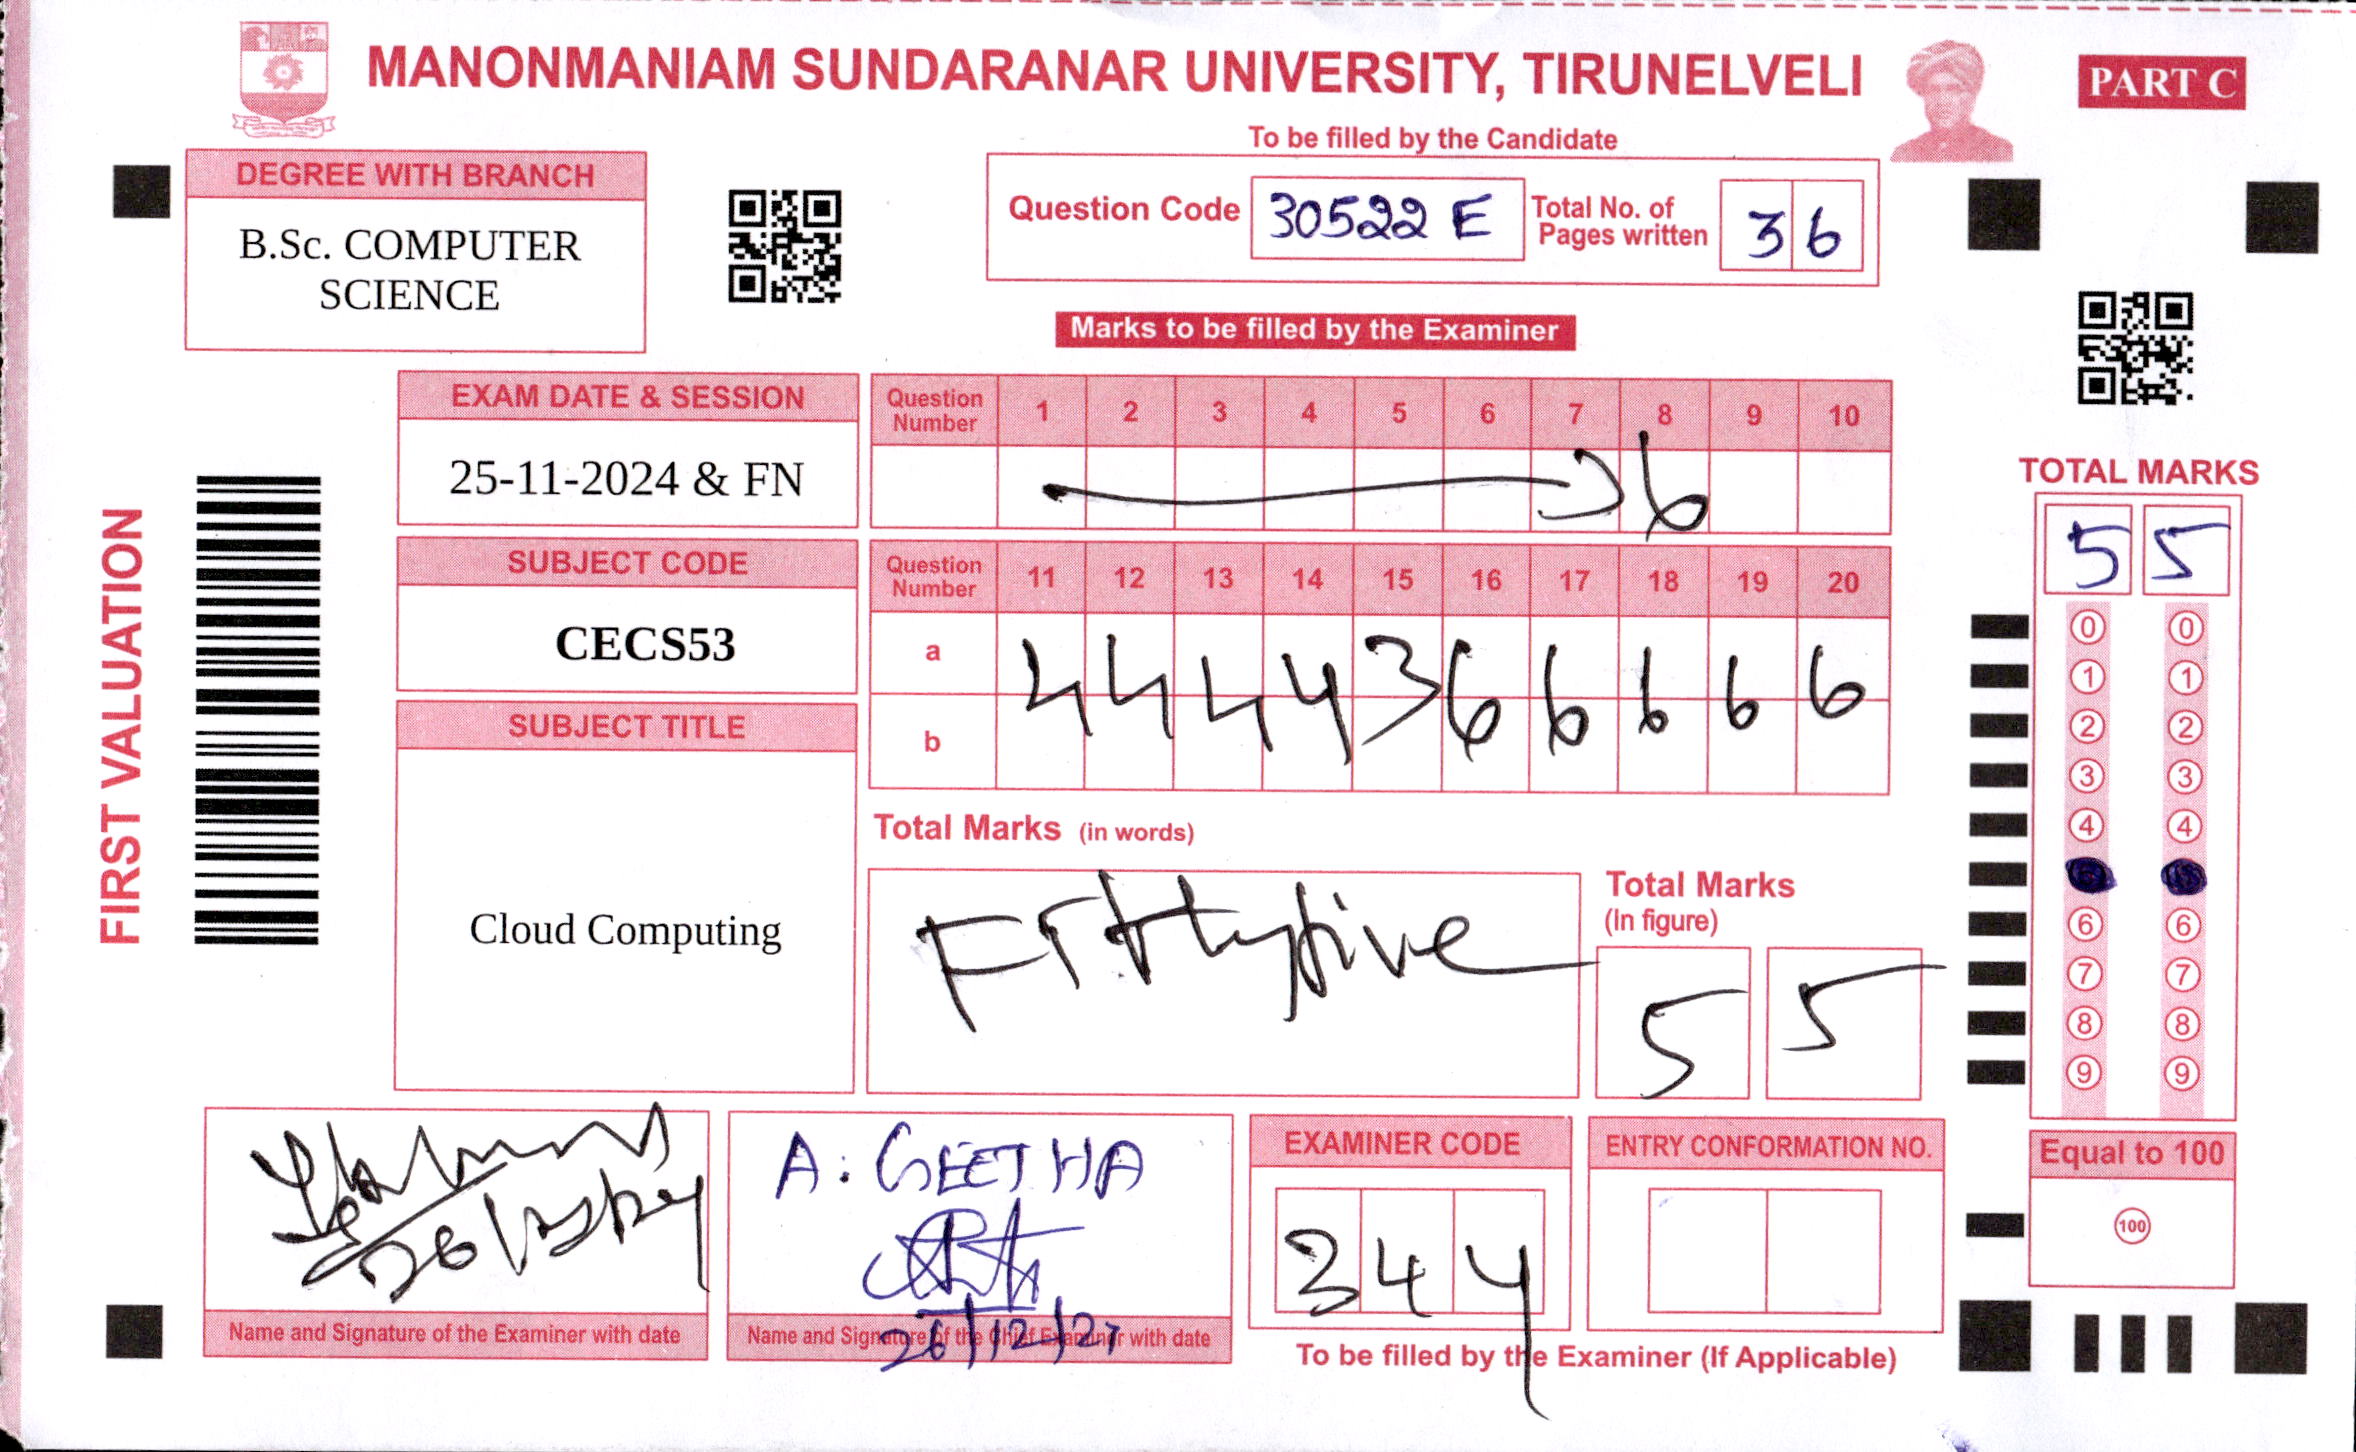 MANONMANIAM SUNDARANAR UNIVERSITY, TIRUNELVELI
PART C
To be filled by the Candidate
DEGREE WITH BRANCH
B.Sc. COMPUTER
SCIENCE
Question Code 30522 E
Total No. of
Pages written 36
Marks to be filled by the Examiner
FIRST VALUATION
EXAM DATE & SESSION
25-11-2024 & FN
SUBJECT CODE
CECS53
SUBJECT TITLE
Cloud Computing
Question
Number 1 2 3 4 5 6 7 8 9 10
6
Question
Number 11 12 13 14 15 16 17 18 19 20
a 4 4 4 4 3 6 6 6 6 6
b
Total Marks (in words)
Fiftyfive
Total Marks
(In figure)
5 5
TOTAL MARKS
5 5
0 0
1 1
2 2
3 3
4 4
6 6
7 7
8 8
9 9
Equal to 100
100
Name and Signature of the Examiner with date
A. GEETHA
Name and Signature of the Chief Examiner with date
EXAMINER CODE
344
ENTRY CONFORMATION NO.
To be filled by the Examiner (If Applicable)